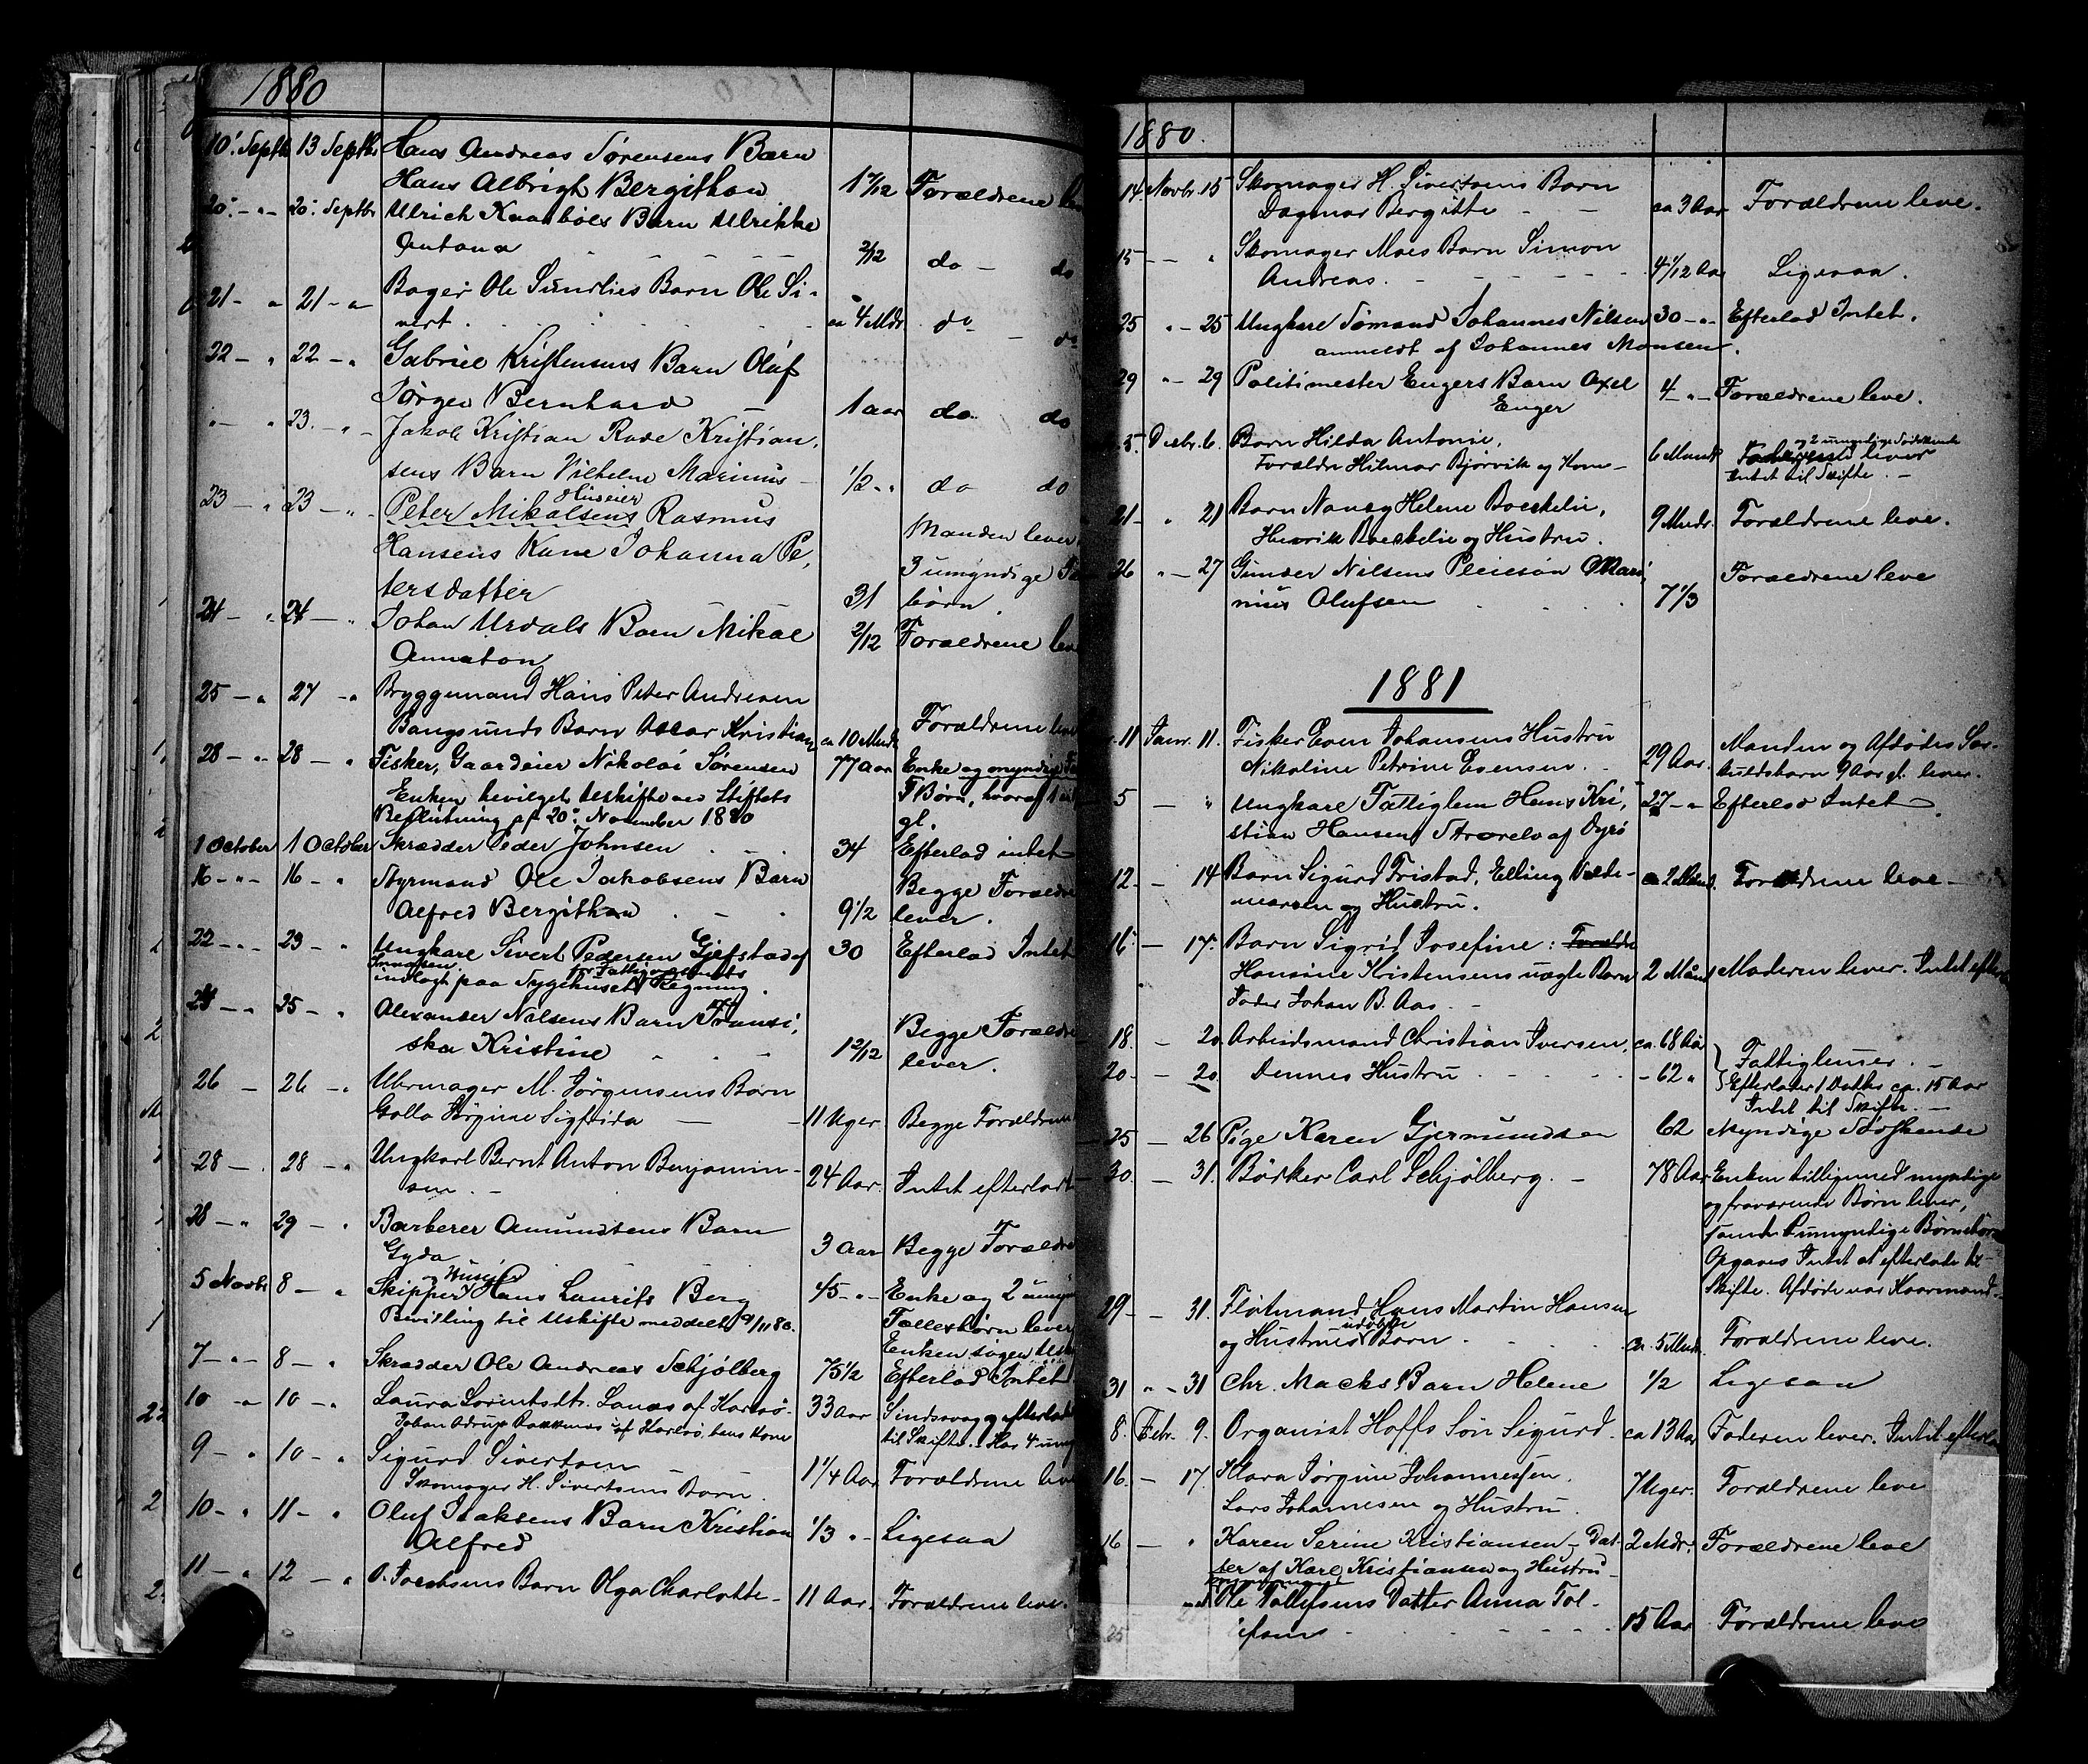 1880
10. Septbr 13 Septbr Hans Andreas Sørensens Barn
Hans Albrigt Bergithon 1 7/12 Forældrene
20. - „ - 20. Septbr Ulrich Kaarbøes Barn Ulrikke
Antona 2/12 do - do
21 - „ 21 - „ Bager Ole Sundlies Barn Ole Si-
vert ca 4 Mdr do - do
22 - „ 22 - „ Gabriel Kristensens Barn Oluf
Jørgen Bernhard 1 aar do do
„ - „ 23. - „ - Jakob Kristian Rode Kristian-
sens Barn Vilhelm Marinus 1/2 - „ do do
23 - „ 23 - „ - Peter Mikalsens Huseier Rasmus
Manden lever
Hansens Kone Johanna Pe-
3 umyndige
tersdatter 31 børn.
24 - „ 24 - „ Johan Urdals Barn Mikal
2/12 Forældrene
Annaton
25 - „ 27 - „ Bryggemand Hans Peter Andresen
Bangsunds Barn Oscar Kristian ca 10 Mdr Forældrene
28 - „ 28 - „ Fisker, Gaardeier Nikolai Sørensen 77 Aar Enke og myndige
Enken bevilget Uskifte ved Stiftets 7 Børn, hvoraf 1
Beslutning af 20. November 1880 gl.
1 October 1 October Skrædder Peder Johnsen 34 Efterlod intet
16 - „ - 16 - „ Styrmand Ole Jakobsens Barn Begge Forældre
Alfred Bergithon 9 1/2 lever.
22 - „ - 23 - „ Ungkarl Sivert Pedersen Gjefstad af 30 Efterlod Intet
indlagt paa Sygehuset for Fattigvæsenets Regning.
24 - „ 25 - „ Alexander Nilsens Barn Fransi- Begge Forældre
ska Kristine 1 2/12 lever.
26 - 26 - „ Uhrmager M. Jørgensens Barn
Golla Jørgine Sigfrida - 11 Uger Begge Forældrene
28 - „ 28 - „ Ungkarl Bernt Anton Benjamin-
sen. - 24 Aar. Intet efterladt
28 - „ 29 - „ Barberer Amundsens Barn
Gyda 3 Aar Begge Forældre
5 Novbr 8 - „ Skipper og Huseier Hans Laurits Berg 45 - „ - Enke og 2
Bevilling til Uskifte meddelt 9/11 80. Fællesbørn lever
Enken søger
7 - „ - 8 - „ Skrædder Ole Andreas Schjølberg 75 1/2 Efterlod Intet
10 „ 10 - „ Laura Lorentsdtr. Lanæs af Karlsø. 33 Aar
Johan Adrup Bakkenæs af Karlsø, hans Kone til Skifte. - Har 4
9 - „ 10 - „ Sigurd Sivertsen - 1 1/4 Aar Forældrene
Skomager H. Sivertsens Barn.
10 - „ 11 - „ Oluf Isaksens Barn Kristian 1/3 „ - Ligesaa
Alfred
11 - „ 12 - „ O. Jacobsens Barn Olga Charlotte - 11 Aar. Forældrene leve.
1880.
14. Novbr. 15 Skomager H. Sivertsens Barn
Dagmar Bergitte - - ca 3 Aar Forældrene leve.
15 - - „ Skomager Moes Barn Simon
Andreas. - - - - - 4 1/12 Aar Ligesaa.
25 „ - 25 Ungkarl Sømand Johannes Nilsen 30 - „ - Efterlod Intet.
anmeldt af Johannes Monsen.
29 „ - 29 Politimester Engers Barn Axel 4 - „ - Forældrene leve.
Enger
5. Decbr. 6. Barn Hilda Antonie, og 2 umyndige Sødskende
Forældre Hilmar Bjørvik og Kone - 6 Maan lever
Intet til Skifte. -
21 - „ 21 Barn Nancy Helene Boeckelie, 9 Mndr. Forældrene leve.
Henrik Boeckelie og Hustru.
26 „ - 27 Gunder Nilsens Pleiesøn Mari- Forældrene leve
nius Olufsen 7 1/3
1881
11 Janr. 11. Fisker Even Johansens Hustru Manden og Afdødes Sær-
Nikoline Petrine Evensen. 29 Aar. kuldsbarn 9 Aar gl. lever.
5 - „ Ungkarl Fattiglem Hans Kri- 27 - „ Efterlod Intet -
stian Hansen Strærelv af Dyrø
12 - - 14 Barn Sigurd Fristad, Elling Valde- ca 2 Mdr. Forældrene leve -
marsen og Hustru.
16 - 17. Barn Sigrid Josefine: Forældre
Hansine Kristensens uægte Barn 2 Maan Moderen lever. Intet
Fader Johan B. Aas. -
18. - 20 Arbeidsmand Christian Iversen, ca. 68 Aar Fattiglemmer. -
20 - - 20. Dennes Hustru - 62 „ Efterlader 1 Datter ca. 15 Aar
Intet til Skifte. -
25 - 26 Pige Karen Gjermundsen 62 Myndige Sødskende
30. - 31. Bødker Carl Schjølberg. - 78 Aar Enken tilligemed myndige
og fraværende Børn lever,
samt umyndige Børnebørn
Opgaves Intet at efterlade til
Skifte. Afdøde var Kaarmand.
29 - - 31. Fløtmand Hans Martin Hansen
og Hustrues udøbte Barn. ca. 5 Mndr. Forældrene leve.
31 „ - 31 Chr. Macks Barn Helene 1/2 Ligesaa
8. Febr. 9. Organist Hoffs Søn Sigurd. ca 13 Aar Faderen lever. Intet
16. - 17. Klara Jørgine Johannessen. 7 Uger. Forældrene leve
Lars Johannesen og Hustru.
16 - „ Karen Serine Kristiansen - Dat- 2 Mdr. Forældrene leve
ter af Karl Kristiansen og Hustru -
Ole Tollefsens Datter Anna Tol-
25 15 Aar Forældrene leve